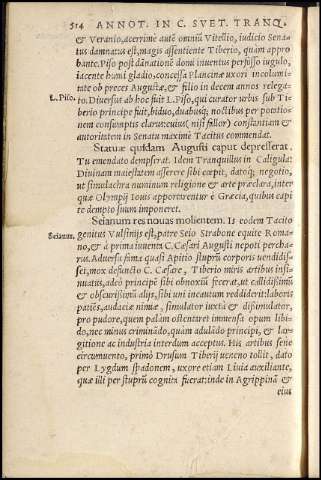 514 ANNOT. IN C. SVET. TRANQ.
& Veranio, acerrimè autẽ omniũ Vitellio, iudicio Senatus damnatus est, magis assentiente Tiberio, quàm approbante. Piso post dãnationẽ domi inuentus perfosso iugulo,
iacente humi gladio, concessa Plancinæ uxori incolumitate ob preces Augustæ, & filio in decem annos relegato. Diuersus ab hoc fuit L. Piso, qui curator urbis sub Tiberio principe fuit, biduo, duabusq; noctibus per potationem consumptis clarus euasit, (nisi fallor) constantiam &
autoritatem in Senatu maximè Tacitus commendat.
L. Piso.
Statuæ quidam Augusti caput depresserat.
Tu emendato dempserat. Idem Tranquillus in Caligula:
Diuinam maiestatem asserere sibi cœpit, datoq; negotio,
ut simulachra numinum religione & arte præclara, inter
quæ Olympij Iouis apportarentur è Græcia, quibus capite dempto suum imponeret.
Seianum res nouas molientem. Is eodem Tacito
Seianus.
genitus Vulsinijs est, patre Seio Strabone equite Romano, & à prima iuuenta C. Cæsari Augusti nepoti percharus. Aduersa fama quasi Apitio stuprũ corporis uendidisset, mox defuncto C. Cæsare, Tiberio miris artibus insinuatus, adeò principẽ sibi obnoxiũ fecerat, ut callidissimũ
& obscurissimũ alijs, sibi uni incautum reddiderit: laboris
patiẽs, audaciæ nimiæ, simulator iuxtà & dissimulator,
pro pudore, quem palam ostentaret immensa opum libido, nec minus criminãdo, quàm adulãdo principi, & largitione ac industria interdum acceptus. His artibus sene
circumuento, primò Drusum Tiberij ueneno tollit, dato
per Lygdum spadonem, uxore etiam Liuia auxiliante,
quæ illi per stuprũ cognita fuerat: inde in Agrippinã &
eius